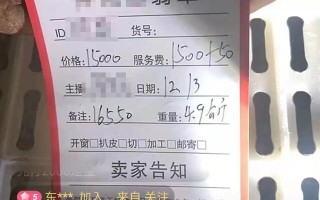 ID 货号:
价格: 15000 服务费: 1500+50
主播 日期: 12/3
备注: 16550 重量: 4.9公斤
开窗□扒皮□切□加工□邮寄□
卖家告知
5 东*** 加入 来自 关注